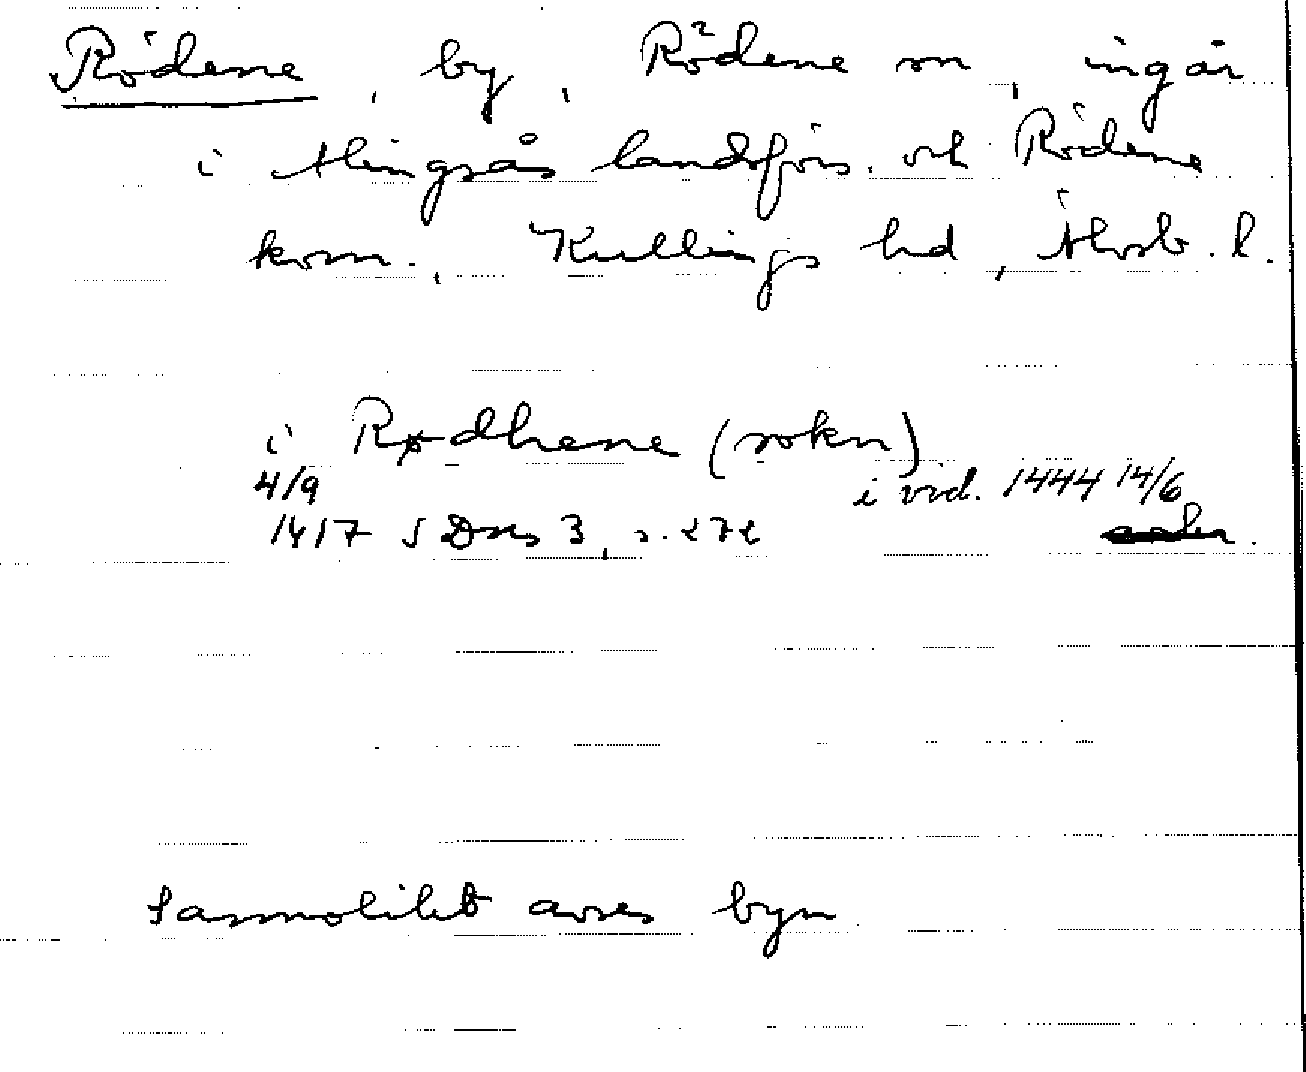 Rödene, by, Rödene sn, ingår
i Alingsås landsförs. och Rödene
kom., Kullings hd, Älvsb. l.
i Rødhene (sokn)
4/9 i vid. 1444 14/6
1417 SDns 3, s. 272
Sannolikt avses byn